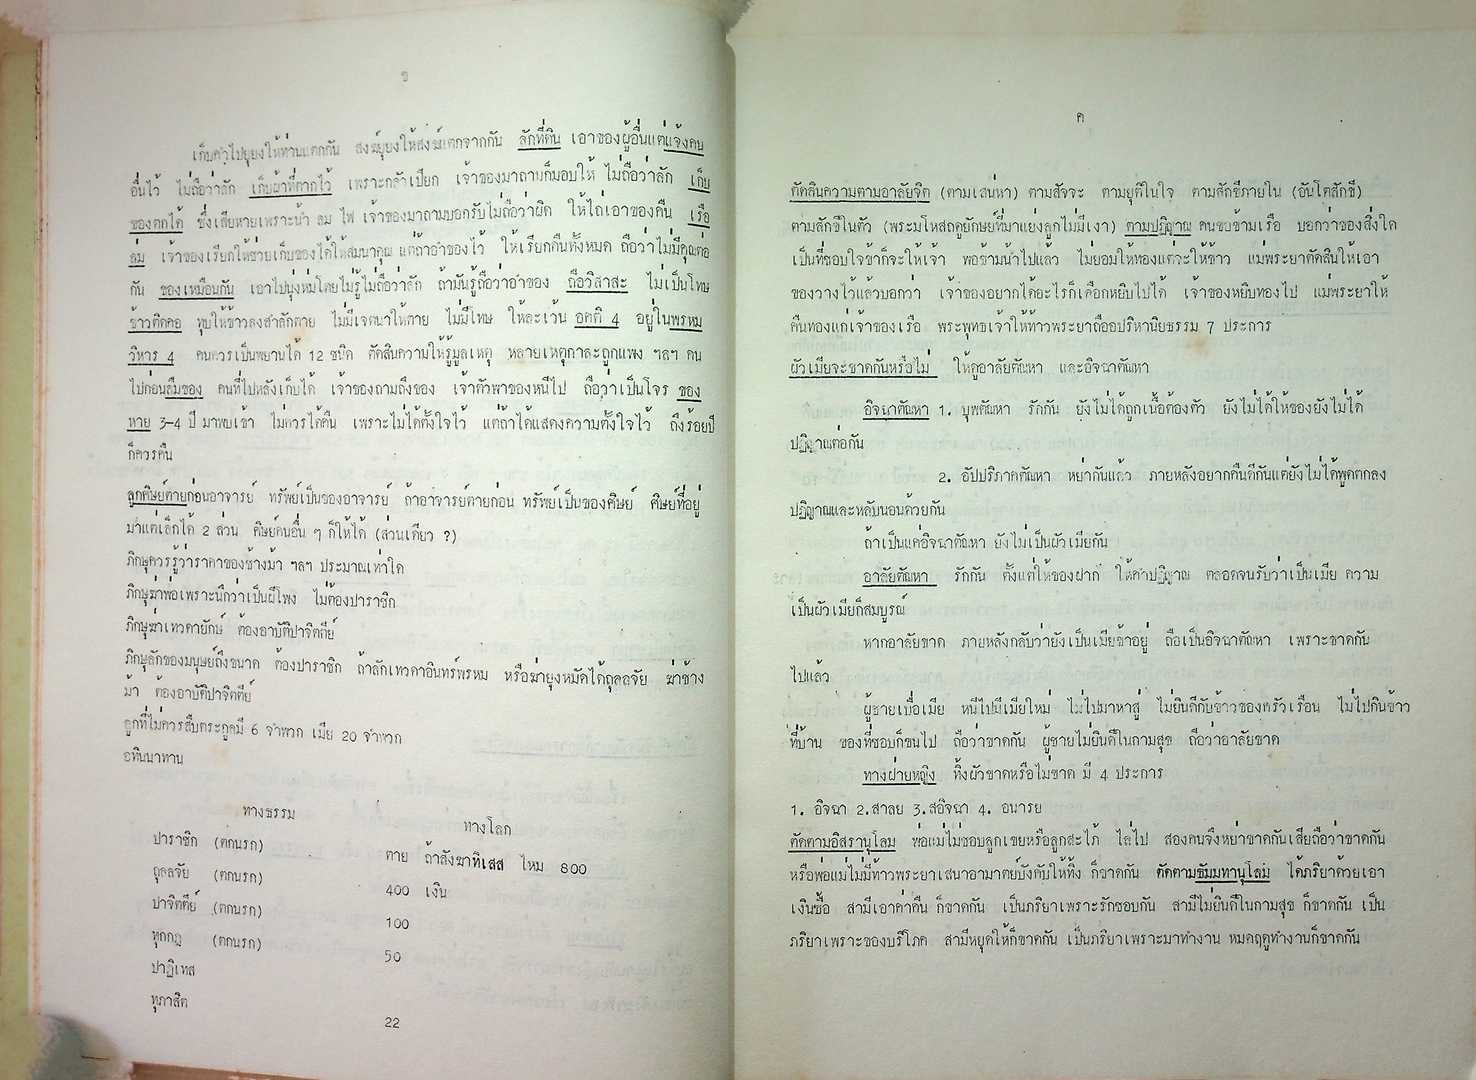 ข
เก็บคำไปยุยงให้ท่านแตกกัน สงฆ์ยุยงให้สงฆ์แตกจากกัน ลักที่ดิน เอาของผู้อื่นแต่แจ้งคน
อื่นไว้ ไม่ถือว่าลัก เก็บผ้าที่ตากไว้ เพราะกลัวเปียก เจ้าของมาถามก็มอบให้ ไม่ถือว่าลัก เก็บ
ของตกได้ ซึ่งเสียหายเพราะน้ำ ลม ไฟ เจ้าของมาถามบอกรับไม่ถือว่าผิด ให้ไถ่เอาของคืน เรือ
ล่ม เจ้าของเรียกให้ช่วยเก็บของได้ให้สมนาคุณ แต่ถ้าอำของไว้ ให้เรียกคืนทั้งหมด ถือว่าไม่มีคุณต่อ
กัน ของเหมือนกัน เอาไปนุ่งห่มโดยไม่รู้ไม่ถือว่าลัก ถ้ามันรู้ถือว่าอำของ ถือวิสาสะ ไม่เป็นโทษ
ข้าวติดคอ ทุบให้ข้าวลงสำลักตาย ไม่มีเจตนาให้ตาย ไม่มีโทษ ให้ละเว้น อคติ 4 อยู่ในพรหม
วิหาร 4 คนควรเป็นพยานได้ 12 ชนิด ตัดสินความให้รู้มูลเหตุ หลายเหตุกาละถูกแพง ฯลฯ คน
ไปก่อนลืมของ คนที่ไปหลังเก็บได้ เจ้าของถามถึงของ เจ้าตัวพาของหนีไป ถือว่าเป็นโจร ของ
หาย 3-4 ปี มาพบเข้า ไม่ควรได้คืน เพราะไม่ได้ตั้งใจไว้ แต่ถ้าได้แสดงความตั้งใจไว้ ถึงร้อยปี
ก็ควรคืน
ลูกศิษย์ตายก่อนอาจารย์ ทรัพย์เป็นของอาจารย์ ถ้าอาจารย์ตายก่อน ทรัพย์เป็นของศิษย์ ศิษย์ที่อยู่
มาแต่เล็กได้ 2 ส่วน ศิษย์คนอื่น ๆ ก็ให้ได้ (ส่วนเดียว ?)
ภิกษุควรรู้ว่าราคาของช้างม้า ฯลฯ ประมาณเท่าใด
ภิกษุฆ่าพ่อเพราะนึกว่าเป็นผีโพง ไม่ต้องปาราชิก
ภิกษุฆ่าเทวดายักษ์ ต้องอาบัติปาจิตตีย์
ภิกษุลักของมนุษย์ถึงขนาด ต้องปาราชิก ถ้าลักเทวดาอินทร์พรหม หรือฆ่ายุงหมัดได้ถุลลจัย ฆ่าช้าง
ม้า ต้องอาบัติปาจิตตีย์
ลูกที่ไม่ควรสืบตระกูลมี 6 จำพวก เมีย 20 จำพวก
อทินนาทาน
ทางธรรม ทางโลก
ปาราชิก (ตกนรก) ตาย ถ้าสังฆาทิเสส ไหม 800
ถุลลจัย (ตกนรก) 400 เงิน
ปาจิตตีย์ (ตกนรก) 100
ทุกกฎ (ตกนรก) 50
ปาฏิเทส
ทุภาสิต
22
ค
ตัดสินความตามอาลัยจิต (ตามเสน่หา) ตามสัจจะ ตามยุติในใจ ตามสักขีภายใน (อันโตสักขี)
ตามสักขีในตัว (พระมโหสถดูยักษย์ที่มาแย่งลูกไม่มีเงา) ตามปฏิญาณ คนขอข้ามเรือ บอกว่าของสิ่งใด
เป็นที่ชอบใจข้าก็จะให้เจ้า พอข้ามน้ำไปแล้ว ไม่ยอมให้ทองแต่จะให้ข้าว แม่พระยาตัดสินให้เอา
ของวางไว้แล้วบอกว่า เจ้าของอยากได้อะไรก็เลือกหยิบไปได้ เจ้าของหยิบทองไป แม่พระยาให้
คืนทองแก่เจ้าของเรือ พระพุทธเจ้าให้ท้าวพระยาถืออปริหานิยธรรม 7 ประการ
ผัวเมียจะขาดกันหรือไม่ ให้ดูอาลัยตัณหา และอิจฉาตัณหา
อิจฉาตัณหา 1. บุพตัณหา รักกัน ยังไม่ได้ถูกเนื้อต้องตัว ยังไม่ได้ให้ของยังไม่ได้
ปฏิญาณต่อกัน
2. อัปปริภาคตัณหา หย่ากันแล้ว ภายหลังอยากคืนดีกันแต่ยังไม่ได้พูดตกลง
ปฏิญาณและหลับนอนด้วยกัน
ถ้าเป็นแค่อิจฉาตัณหา ยังไม่เป็นผัวเมียกัน
อาลัยตัณหา รักกัน ตั้งแต่ให้ของฝาก ให้คำปฏิญาณ ตลอดจนรับว่าเป็นเมีย ความ
เป็นผัวเมียก็สมบูรณ์
หากอาลัยขาด ภายหลังกลับว่ายังเป็นเมียข้าอยู่ ถือเป็นอิจฉาตัณหา เพราะขาดกัน
ไปแล้ว
ผู้ชายเบื่อเมีย หนีไปมีเมียใหม่ ไม่ไปมาหาสู่ ไม่ยินดีกับข้าวของครัวเรือน ไม่ไปกินข้าว
ที่บ้าน ของที่ชอบก็ขนไป ถือว่าขาดกัน ผู้ชายไม่ยินดีในกามสุข ถือว่าอาลัยขาด
ทางฝ่ายหญิง ทิ้งผัวขาดหรือไม่ขาด มี 4 ประการ
1. อิจฉา 2.สาลย 3.สอิจฉา 4. อนารย
ตัดตามอิสรานุโลม พ่อแม่ไม่ชอบลูกเขยหรือลูกสะไภ้ ไล่ไป สองคนจึงหย่าขาดกันเสียถือว่าขาดกัน
หรือพ่อแม่ไม่มีท้าวพระยาเสนาอามาตย์บังคับให้ทิ้ง ก็ขาดกัน ตัดตามธัมมทานุโลม ได้ภริยาด้วยเอา
เงินซื้อ สามีเอาค่าคืน ก็ขาดกัน เป็นภริยาเพราะรักชอบกัน สามีไม่ยินดีในกามสุข ก็ขาดกัน เป็น
ภริยาเพราะของบริโภค สามีหยุดให้ก็ขาดกัน เป็นภริยาเพราะมาทำงาน หมดฤดูทำงานก็ขาดกัน